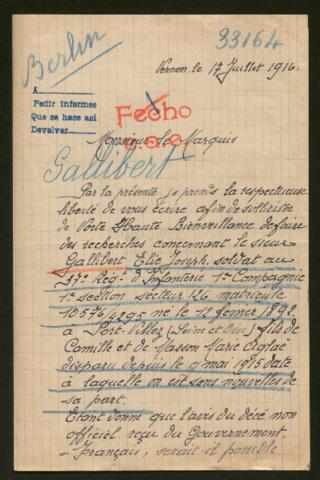 Berlin
33164
Vernon, le 17 Juillet 1916.
A
Pedir informes
Que se hace así
Devolver
Fecho
Monsieur le Marquis
Gallibert
Par la présente je prends la respectueuse
liberté de vous écrire afin de solliciter
de Votre Haute Bienveillance de faire
des recherches concernant le sieur
Gallibert Elie Joseph, soldat au
37e Reg.t d'Infanterie 1e Compagnie
1e section secteur 126 matricule
10576/4295 né le 12 fevrier 1892
à Port-Villez (Seine et Oise) fils de
Camille et de Masson Marie Aglaé
disparu depuis le 9 mai 1915 date
à laquelle on est sans nouvelles de
sa part.
Etant donné que l'avis du décé non
officiel reçu du Gouvernement
Français, serait-il possible